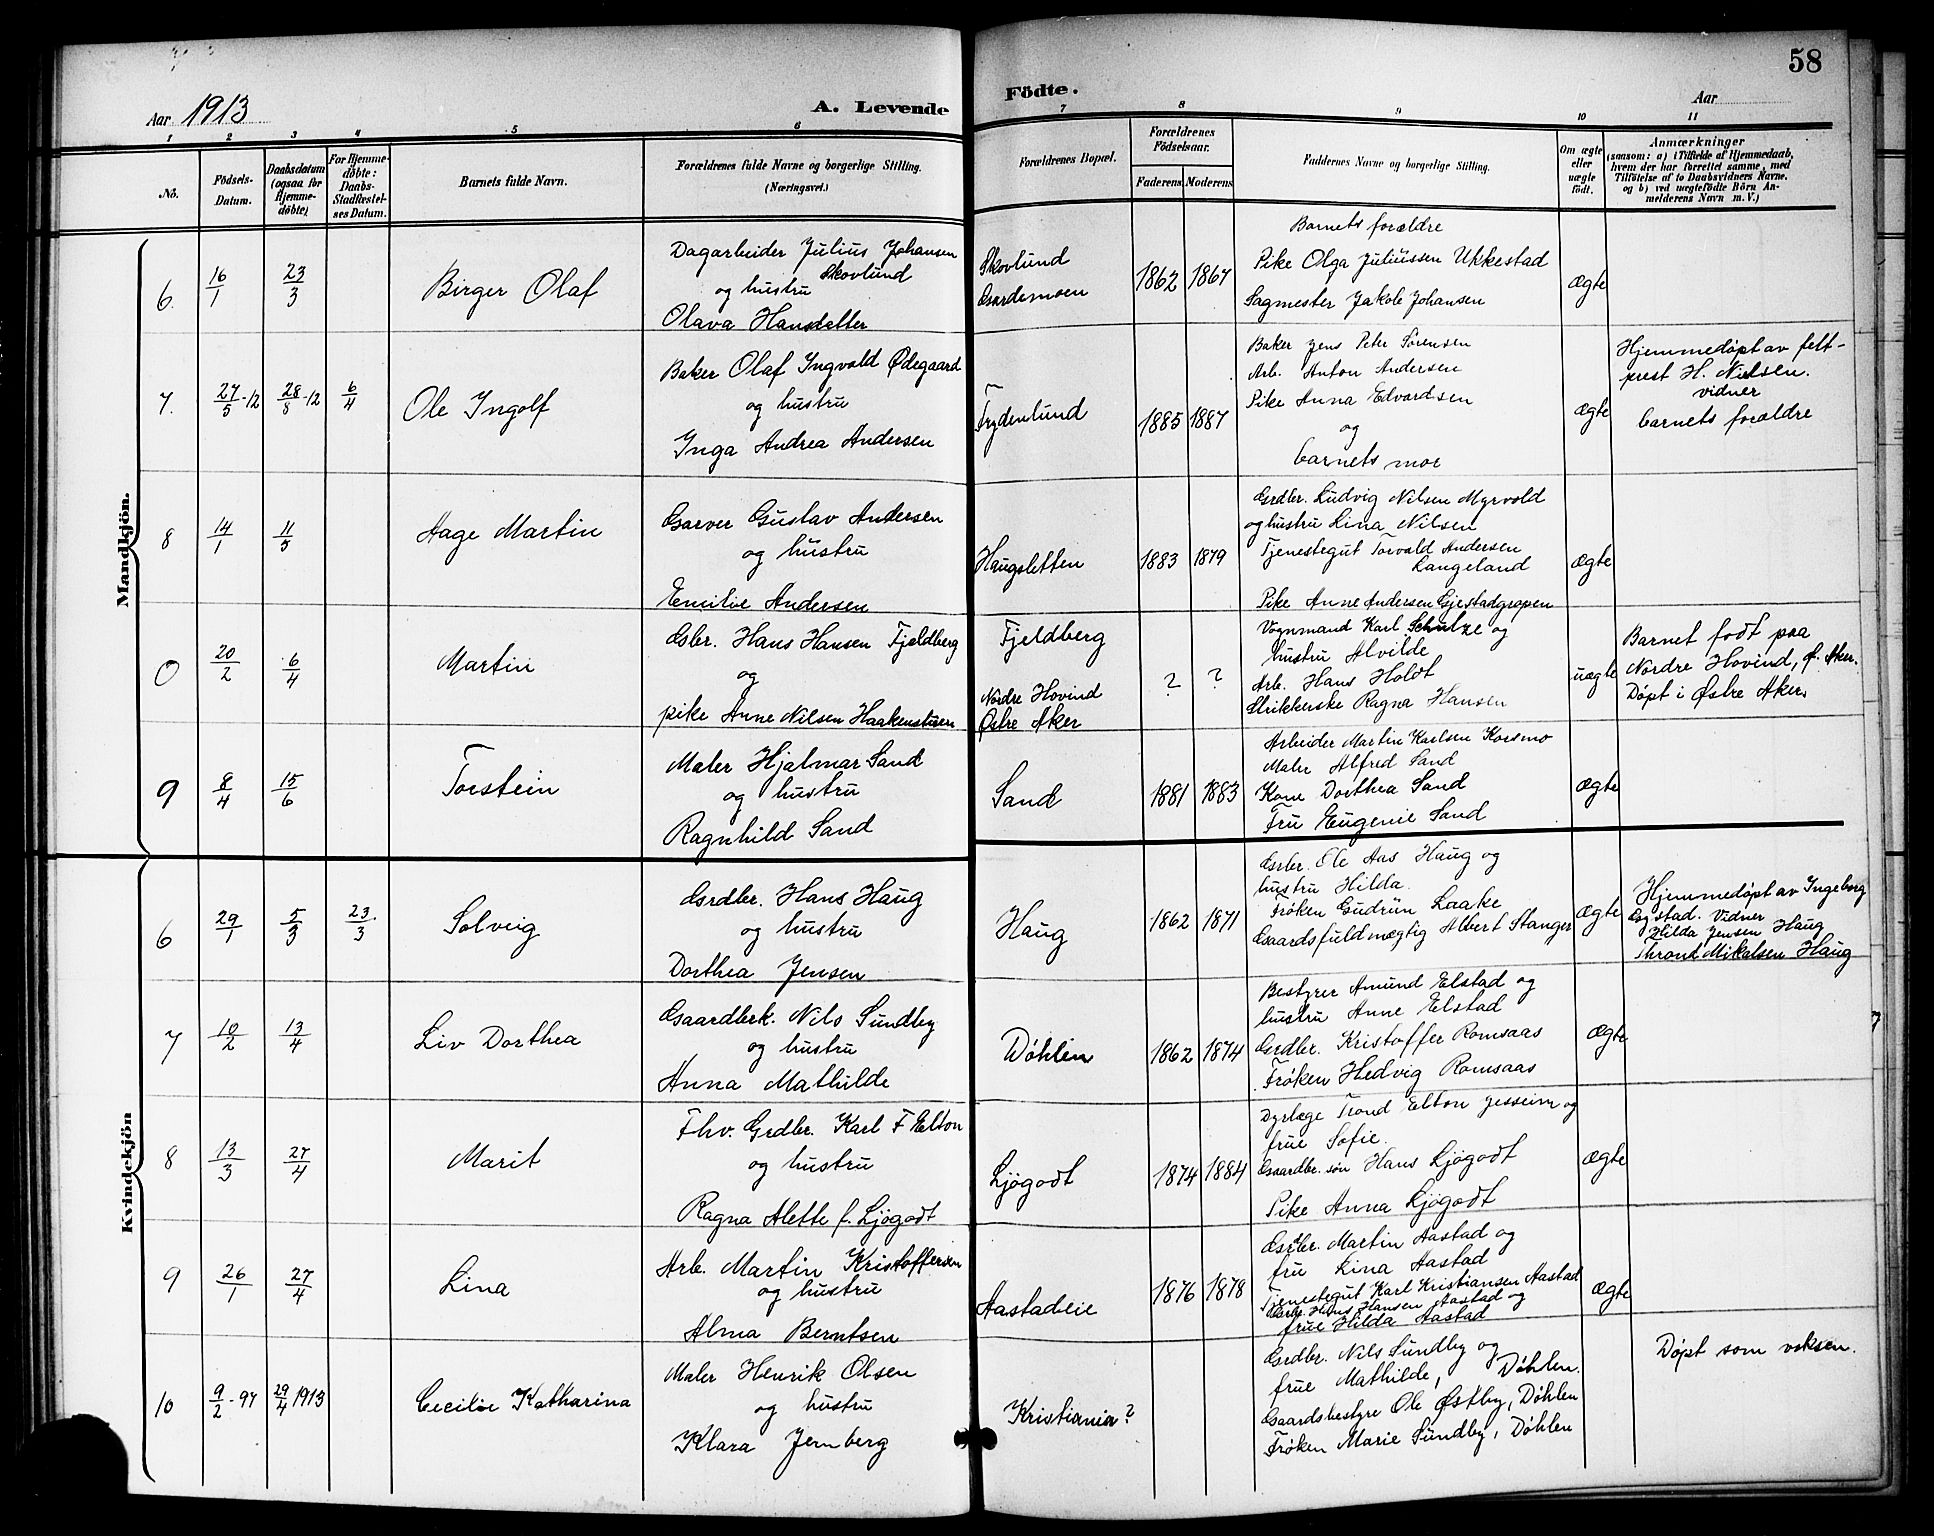 58
Aar 1913
A. Levende
Födte.
Aar
1
2
3
4
5
6
7
8
9
10
11
No.
Födsels-
Datum.
Daabsdatum
(ogsaa for
Hjemme-
döbte)
For Hjemme-
döbte:
Daabs-
Stadfæstel-
ses Datum.
Barnets fulde Navn.
Forældrenes fulde Navne og borgerlige Stilling.
(Næringsvei.)
Forældrenes Bopæl.
Forældrenes
Födselsaar.
Faderens
Moderens
Faddernes Navne og borgerlige Stilling.
Om ægte
eller
uægte
födt.
Anmærkninger
(saasom: a) i Tilfælde af Hjemmedaab,
hvem der har forrettet samme, med
Tilföielse af to Daabsvidners Navne.
og b) ved uægtefödte Börn An-
melderens Navn m. V.)
Mandkjön.
6.
16/1
23/3
Birger Olaf
Dagarbeider Julius Johansen
Skovlund
og hustru
Olava Hansdatter
Skovlund
Gardemoen
1862
1867
Barnets forældre
Pike Olga Juliussen Ukkestad
Sagmester Jakob Johansen
Ægte
7.
27/5-12
28/8-12
6/4
Ole Ingolf
Baker Olaf Ingvald Ødegaard
og hustru
Inga Andrea Andersen
Frydenlund
1885
1887
Baker Jens Peter Sørensen
Arb. Anton Andersen
Pike Anna Edvardsen
og
barnets mor
Ægte
Hjemmedøpt av felt-
prest H. Nielsen.
vidner
barnets forældre
8
14/1
11/5
Aage Martin
Garver Gustav Andersen
og hustru
Emilie Andersen
Haugsletten
1883
1879
Grdbr. Ludvig Nilsen Myrvold
og hustru Lina Nilsen
Tjenestegut Torvald Andersen
Langeland
Pike Anne Andersen Gjestadgropen
Ægte
0
20/2
6/4
Martin
Gbr. Hans Hansen Fjeldberg
og
pike Anne Nilsen Haakenstuen
Fjeldberg
Nordre Hovind
Østre Aker
?
?
Vognmand Karl Schulze og
hustru Alvilde
Arb. Hans Holdt
Strikkerske Ragna Hansen
uægte
Barnet født paa
Nordre Hovind, Ø. Aker.
Døpt i Østre Aker.
9
8/4
15/6
Torstein
Maler Hjalmar Sand
og hustru
Ragnhild Sand
Sand
1881
1883
Arbeider Martin Karlsen Korsmo
Maler Alfred Sand
Kone Dorthea Sand
Fru Eugenie Sand
Ægte
Kvindekjön
6
29/1
5/3
23/3
Solveig
Grdbr. Hans Haug
og hustru
Dorthea Jensen
Haug
1862
1871
Grdbr. Ole Aas Haug og
hustru Hilda.
Frøken Gudrun Laake
Gaardsfuldmægtig Albert Stanger
Ægte
Hjemmedøpt av Ingeborg
Gystad. Vidner
Hilda Jensen Haug
Thrond Mikalsen Haug
7
10/2
13/4
Liv Dorthea
Gaardbrk. Nils Sundby
og hustru
Anna Mathilde
Døhlen
1862
1874
Bestyrer Amund Elstad og
hustru Anne Elstad
Grdbr. Kristoffer Romsaas
Frøken Hedvig Romsaas
Ægte
8
13/3
27/4
Marit
Fhv. Grdbr. Karl F Elton
og hustru
Ragna Alette f. Ljøgodt
Ljøgodt
1874
1884
Dyrlæge Trond Elton Jesseim og
frue Sofie.
Gaardbr. søn Hans Ljøgodt
Pike Anna Ljøgodt
Ægte
9
26/1
27/4
Lina
Arb. Martin Kristoffersen
og hustru
Alma Berntsen
Aastadeie
1876
1878
Grdbr. Martin Aastad og
fru Lina Aastad
Tjenestegut Karl Kristiansen Aastad
Hans Hansen Aastad og
frue Hilda Aastad
Ægte
10
9/2-97
29/4 1913
Cecilie Katharina
Maler Henrik Olsen
og hustru
Klara Jernberg
Kristiania?
Grdbr. Nils Sundby og
frue Mathilde, Døhlen.
Gaardsbestyre Ole Østby, Døhlen
Frøken Marie Sundby, Døhlen
Døpt som voksen.